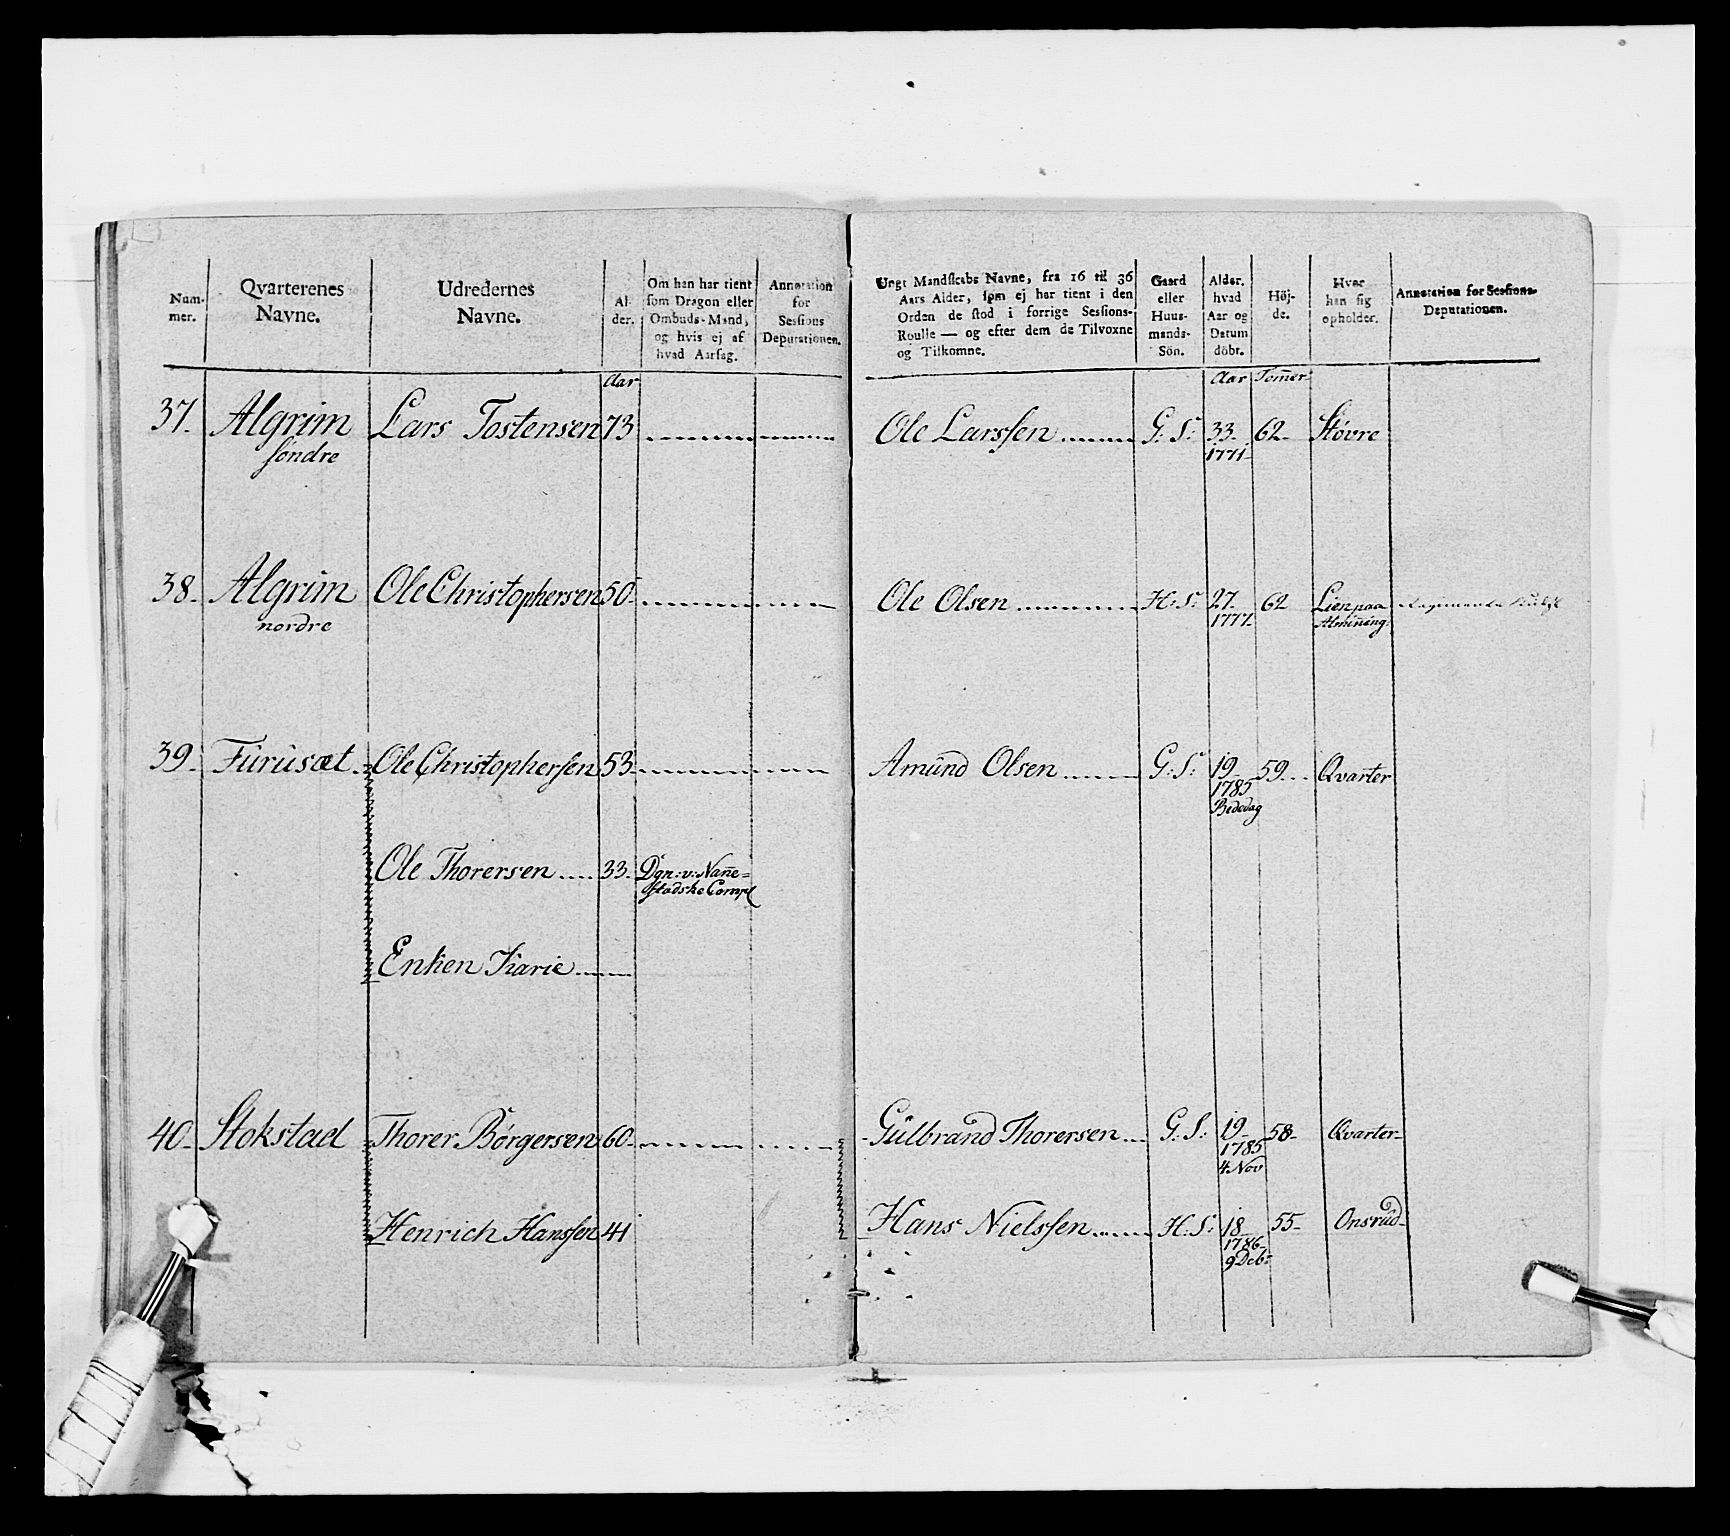 Num-
mer.
Qvarterenes
Navne.
Udredernes
Navne.
Al-
der.
Om han har tient
som Dragon eller
Ombuds-Mand,
og hvis ej af
hvad Aarsag.
Annotation
for
Sessions
Deputationen.
Ungt Mandskabs Navne, fra 16 til 36
Aars Alder, som ej har tient i den
Orden de stod i forrige Sessions-
Roulle — og efter dem de Tilvoxne
og Tilkomne.
Gaard
eller
Huus-
mands-
Sön.
Alder,
hvad
Aar og
Datum
döbt.
Höj-
de.
Hvor
han sig
opholder.
Annotation for Sessions-
Deputationen.
Aar
Aar Tom̅er
37. Algrim Lars Tostensen 73 Ole Larssen G: S: 33 62 Støvre
søndre 1771
38 Algrim Ole Christophersen 50 Ole Olsen H: S: 27 62 Lien paa
nordre 1777 Almining:
39 Furusæt Ole Christophersen 53 Amund Olsen G: S: 19 59 Qvarter
1785
Bededag
Ole Thorersen 33 Dgn: v: Nan̅e=
stadske Comp
Enken Karie
40 Stokstad Thorer Børgersen 60 Gulbrand Thorersen G: S: 19 58 Qvarter
1785
4 Nov
Henrich Hanssen 41 Hans Nielssen H: S: 18 55 Onsrud
1786
9 Deb: